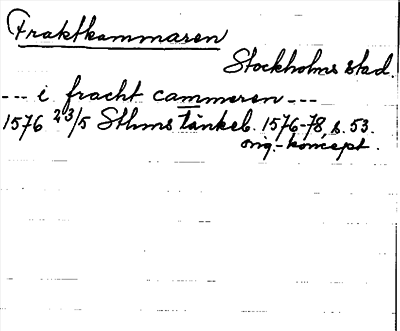 Fraktkammaren
Stockholms stad.
--- i fracht cammeren ---
1576 23/5 Sthms tänkeb. 1576-78, s. 53.
orig.-koncept.